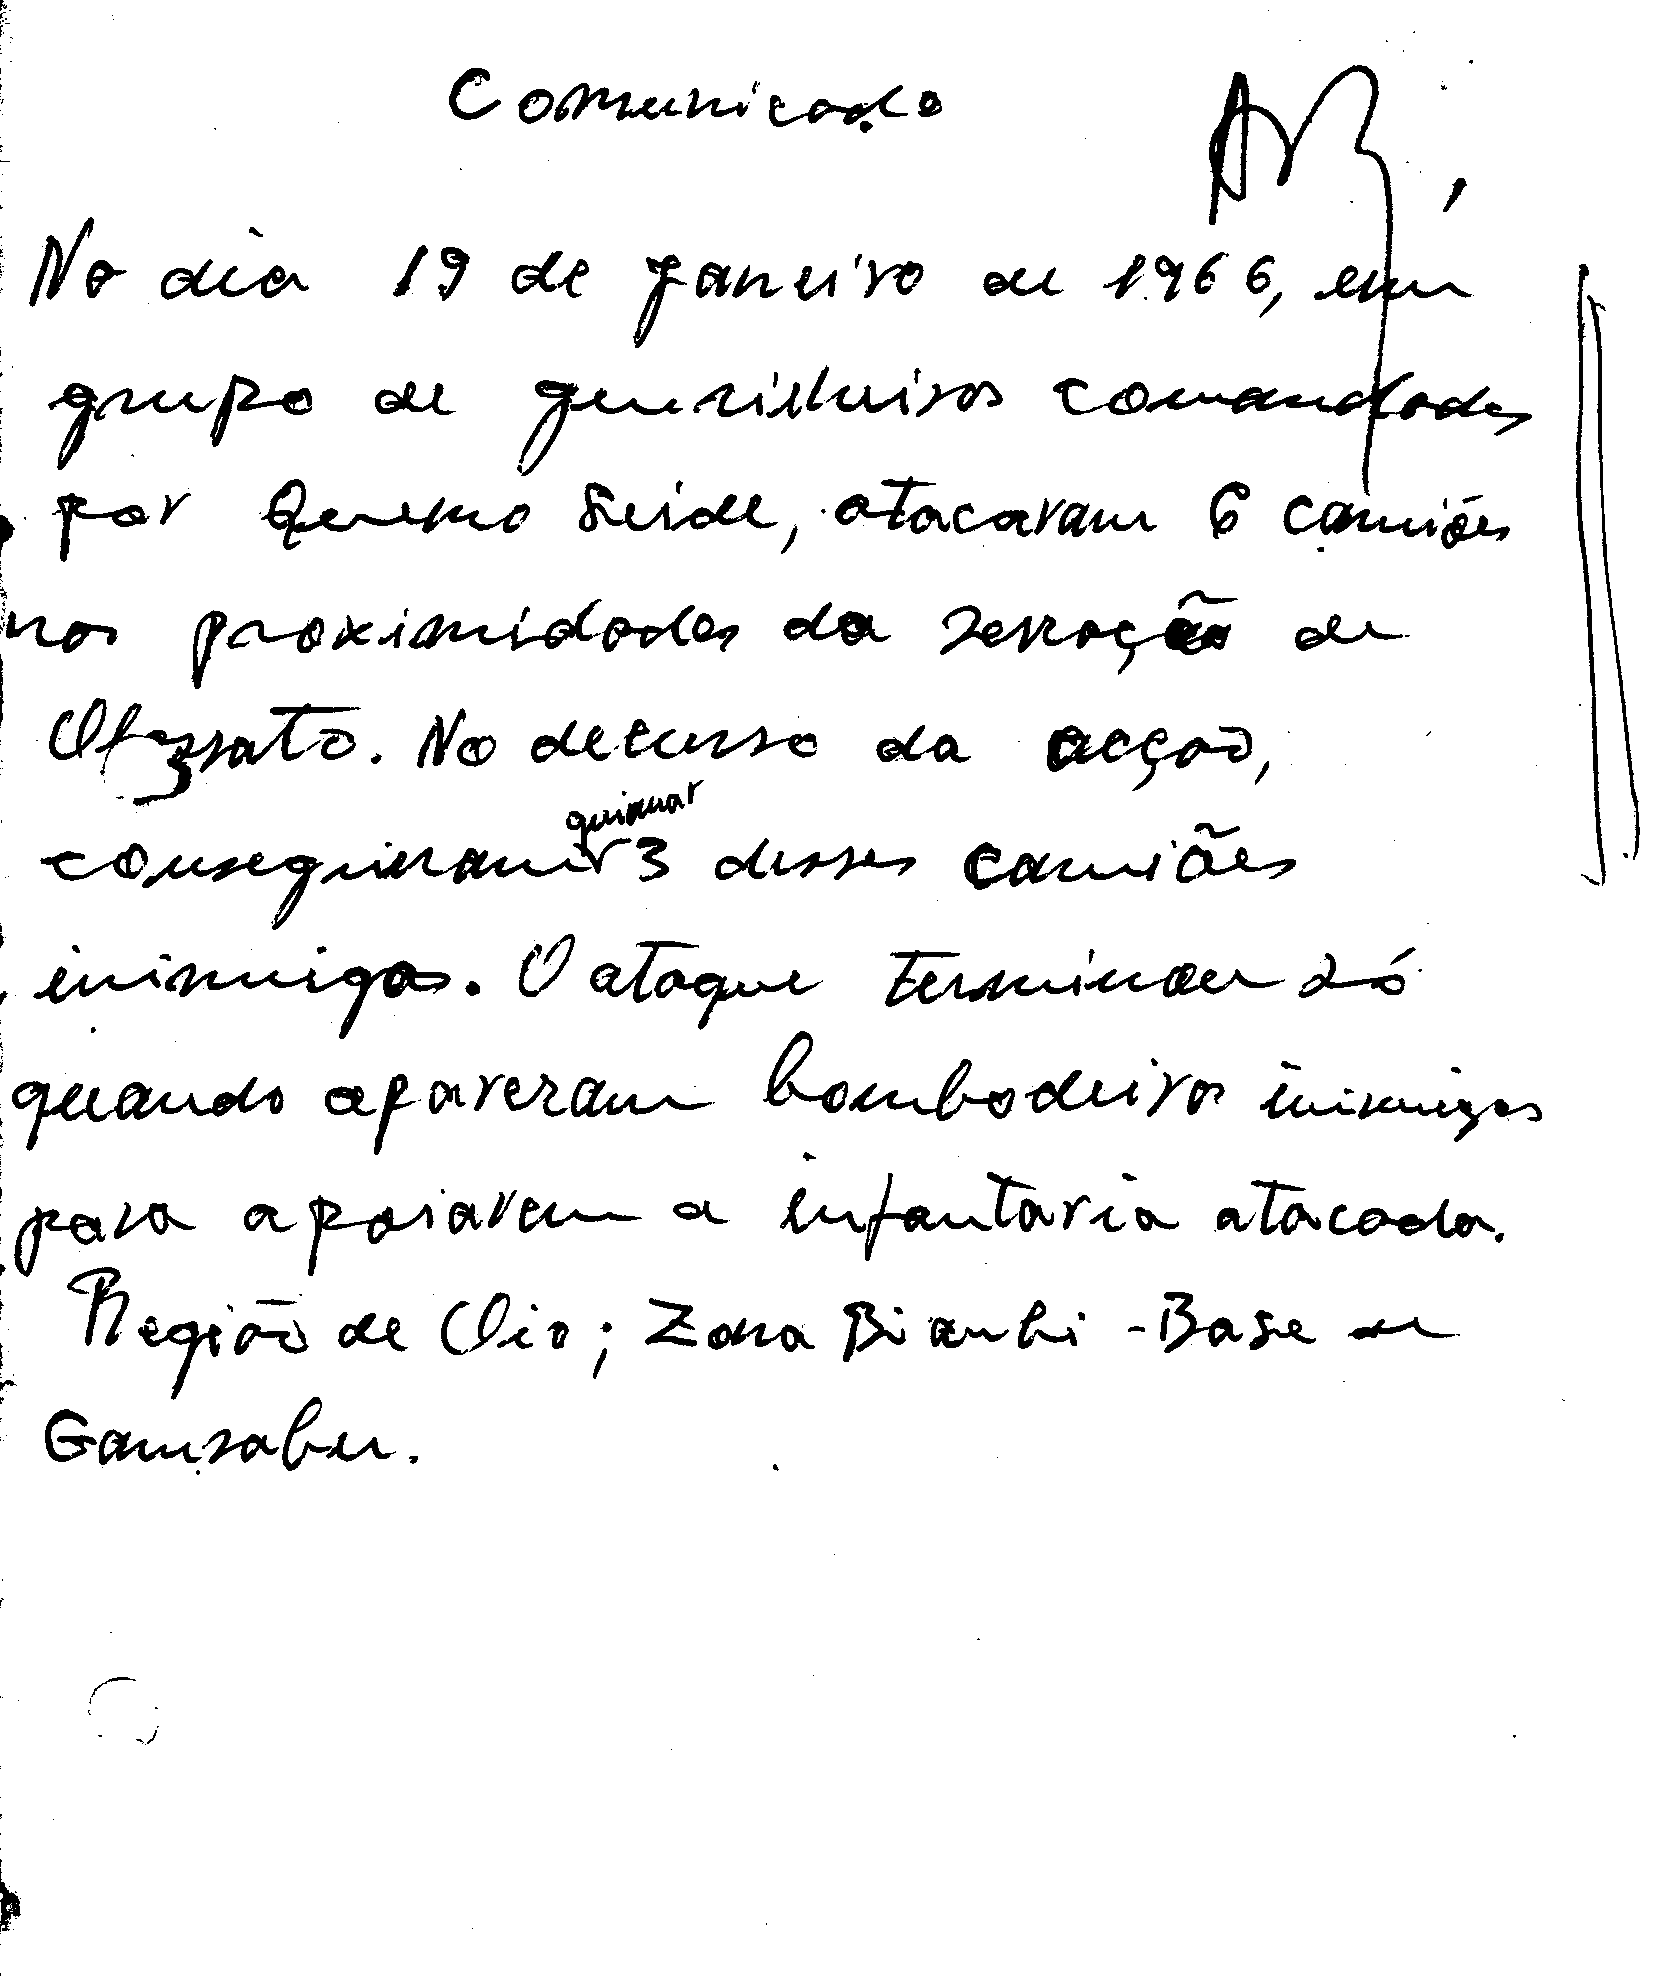 Comunicado
No dia 19 de Janeiro de 1966, um
grupo de guerrilheiros comandados
por Quemo Seide, atacaram 6 camiões
nas proximidades da serração de
Olossato. No decurso da acção,
queimar
conseguiram 3 desses camiões
inimigos. O ataque terminou só
quando apareram bombadeiros inimigos
para apoiarem a infantaria atacada.
Região de Oio; Zona Biambi - Base de